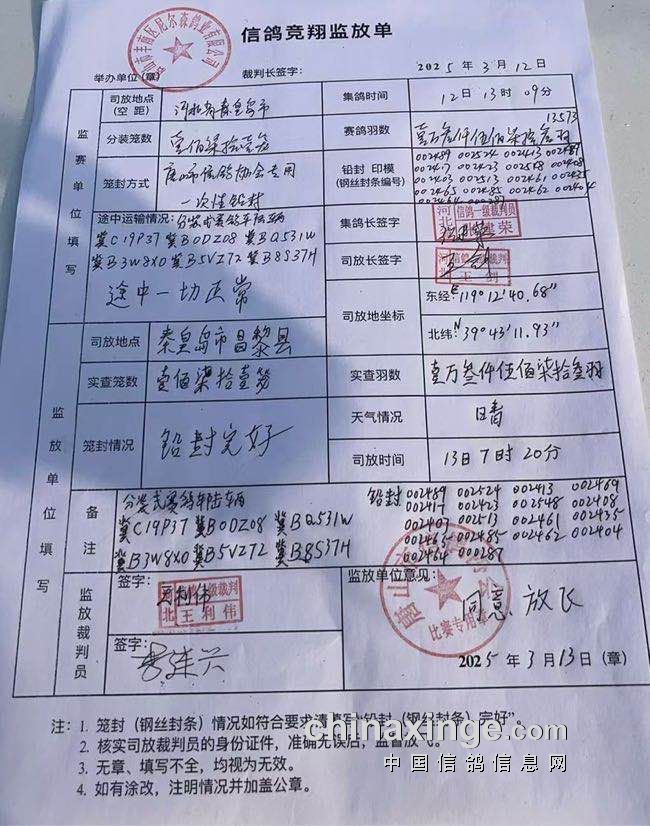 信鸽竞翔监放单
唐山市丰南区尼尔森鸽业有限公司
举办单位(章) 裁判长签字: 2025年3月12日
监赛单位填写
司放地点(空距) 河北省秦皇岛市 集鸽时间 12日13时09分
分装笼数 壹佰柒拾壹笼 赛鸽羽数 壹万叁仟伍佰柒拾叁羽 13573
笼封方式 唐山市信鸽协会专用一次性铅封
铅封 印模(钢丝封条编号) 002489 002524 002413 002469
002417 002423 002548 002408
002403 002513 002461 002435
002465 002485 002462 002404
002464 000287
途中运输情况: 分装式赛鸽车陆辆
冀C19P37 冀B0DZ08 冀BQ531W
冀B3W8X0 冀B5VZ72 冀B8S37H
途中一切正常
集鸽长签字 河北 信鸽一级裁判员
司放长签字 王剑
司放地坐标 东经:E119°12'40.68"
北纬:N39°43'11.93"
监放单位填写
司放地点 秦皇岛市昌黎县
实查笼数 壹佰柒拾壹笼 实查羽数 壹万叁仟伍佰柒拾叁羽
笼封情况 铅封完好 天气情况 晴
司放时间 13日7时20分
备注 分装式赛鸽车陆辆
冀C19P37 冀B0DZ08 冀BQ531W
冀B3W8X0 冀B5VZ72 冀B8S37H
铅封 002489 002524 002413 002469
002417 002423 002548 002408
002407 002513 002461 002435
002465 002485 002462 002404
002464 000287
监放裁判员
签字: 王利伟
信鸽一级裁判
北 王利伟
签字:
监放单位意见: 同意放飞
比赛专用章
2025年3月13日(章)
注: 1. 笼封(钢丝封条)情况如符合要求请填写"铅封(钢丝封条)完好"。
2. 核实司放裁判员的身份证件,准确无误后,监督放飞。
3. 无章、填写不全,均视为无效。
4. 如有涂改,注明情况并加盖公章。
chinaxinge.com
中国信鸽信息网